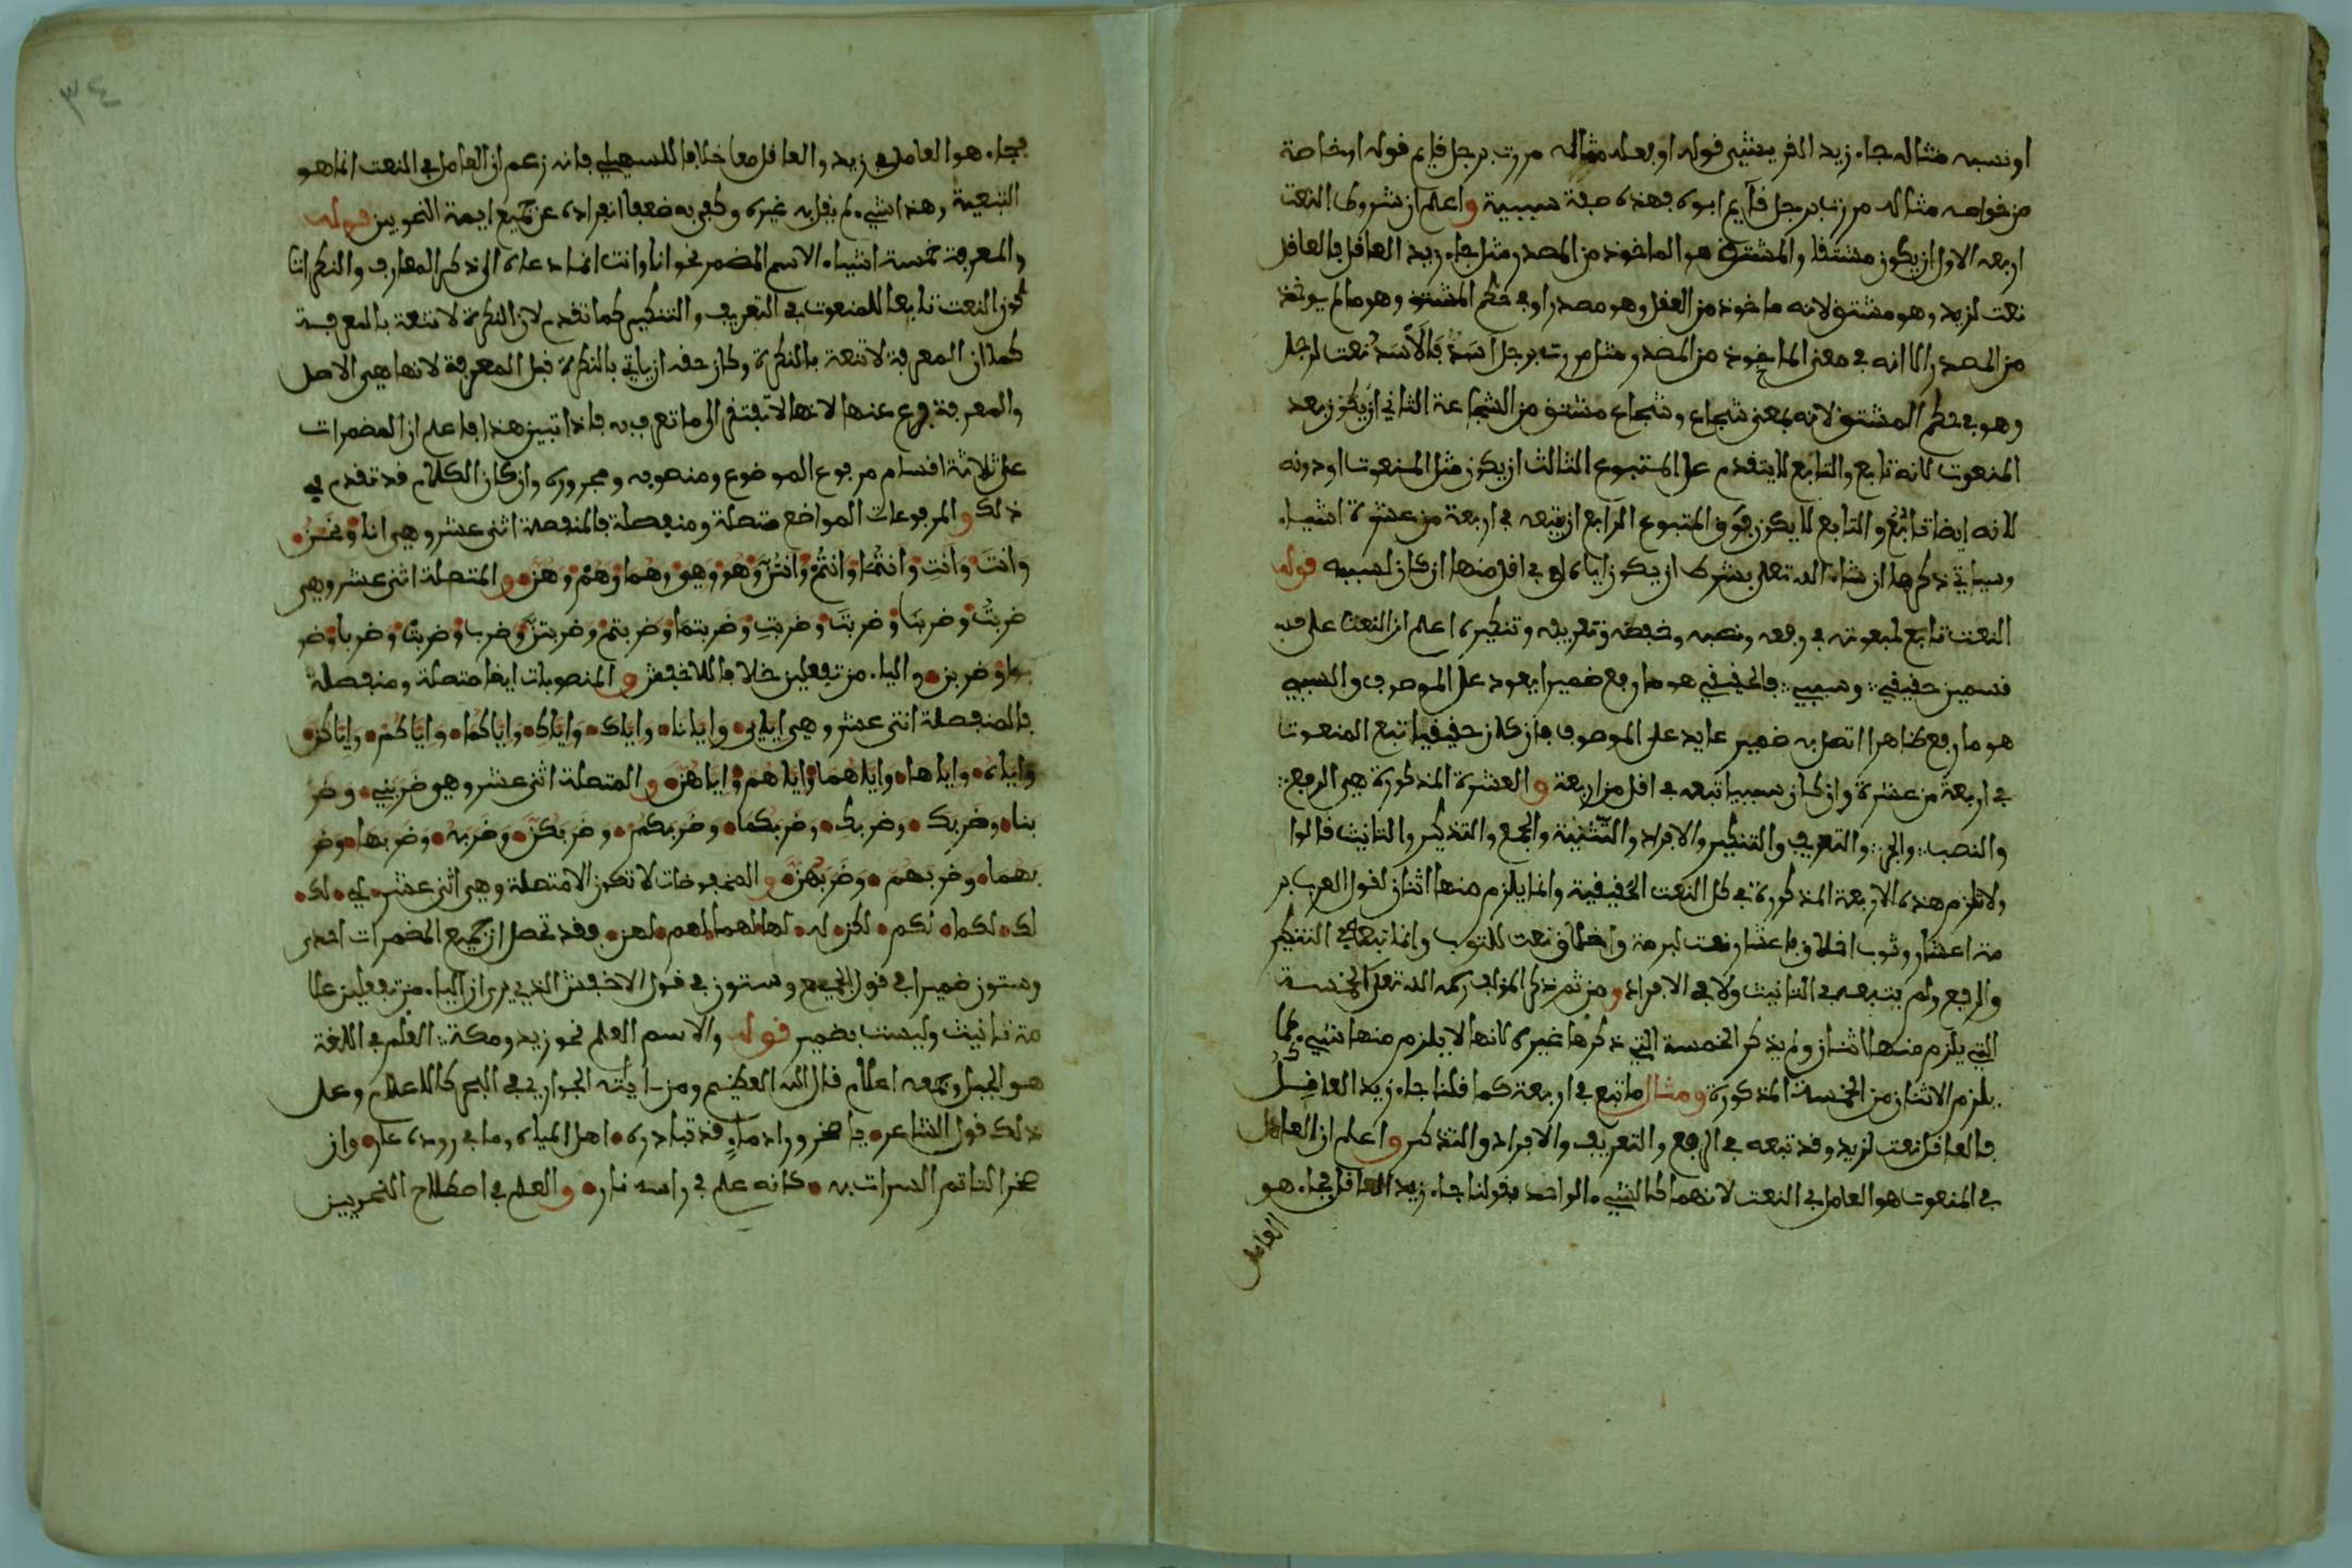 او نسبه مثاله جاء زيد القريشي قوله او بعله مثاله مررت برجل قايم قوله او خاصة
من خواصه مثاله مررت برجل قايم ابوه فهذه صفة سببية واعلم ان شروط النعت
اربعه الاول ان يكون مشتقا والمشتق هو الماخوذ من المصدر مثل جاء زيد العاقل فالعاقل
نعت لزيد وهو مشتق لانه ماخوذ من العقل وهو مصدر او في حكم المشتق وهو ما لم يوخذ
من المصدر الا انه في معنى الماخوذ من المصدر مثل مررت برجل اسد فالاسد نعت لرجل
وهو في حكم المشتق لانه بمعنى شجاع وشجاع مشتق من الشجاعة الثاني ان يكون بعد
المنعوت لانه تابع والتابع لا يتقدم على المتبوع الثالث ان يكون مثل المنعوت او دونه
لانه ايضا تابع والتابع لا يكون فوق المتبوع الرابع ان يتبعه في اربعة من عشرة اشياء
وسياتي ذكرها ان شاء الله تعلى بشرط ان يكون اياه او في اقل منها ان كان لسببه قوله
النعت تابع لمنعوته في رفعه ونصبه وخفضه وتعريفه وتنكيره اعلم ان النعت على
قسمين حقيقي وسببي فالحقيقي هو ما رفع ضميرا يعود على الموصوف والسببي
هو ما رفع ظاهرا اتصل به ضمير عايد على الموصوف فان كان حقيقيا تبع المنعوت
في اربعة من عشرة وان كان سببيا تبعه في اقل من اربعة والعشرة المذكورة هي الرفع
والنصب والجر والتعريف والتنكير والافراد والتثنية والجمع والتذكير والتانيث قالوا
ولا تلزم هذه الاربعة المذكورة في كل النعت الحقيقية وانما يلزم منها اثنان لقول العرب بر
مة اعشار وثوب اخلاق فاعشار نعت لبرمة واخلاق نعت للثوب وانما تبعه في التنكير
والرفع ولم يتبعه في التانيث ولا في الافراد ومن ثم ذكر المولف رحمه الله تعلى الخمسة
التي يلزم منها اثنان ولم يذكر الخمسة التي ذكرها غيره لانها لا يلزم منها شيء كما
يلزم الاثنان من الخمسة المذكورة ومثال ما تبع في اربعة كما قلنا جاء زيد العاقل
فالعاقل نعت لزيد وقد تبعه في الرفع والتعريف والافراد والتذكير واعلم ان العامل
في المنعوت هو العامل في النعت لانهما كالشيء الواحد فقولنا جاء زيد العاقل فجاء هو
العامل
٣٤
فجاء هو العامل في زيد والعاقل معا خلافا للسهيلي فانه زعم ان العامل في النعت انما هو
التبعية وهذا شيء لم يقل به غيره وكفى به ضعفا انفراده عن جميع ايمة النحويين قوله
والمعرفة خمسة اشياء الاسم المضمر نحو انا وانت انما دعاه الى ذكر المعارف والنكرات
كون النعت تابعا للمنعوت في التعريف والتنكير كما تقدم لان النكرة لا تنعت بالمعرفة
كما ان المعرفة لا تنعت بالنكرة وكان حقه ان ياتي بالنكرة قبل المعرفة لانها هي الاصل
والمعرفة فرع عنها لانها لا تفتقر الى ما تعرف به فاذا تبين هذا فاعلم ان المضمرات
على ثلاثة اقسام مرفوع الموضوع ومنصوبه ومجروره وان كان الكلام قد تقدم في
ذلك والمرفوعات المواضع متصلة ومنفصلة فالمنفصلة اثنى عشر وهي انا ونحن
وانت وانت وانتما وانتم وانتن وهو وهي وهما وهم وهن والمتصلة اثنى عشر وهي
ضربت وضربنا وضربت وضربت وضربتما وضربتم وضربتن وضرب وضربت وضربا وضر
بوا وضربن والياء من تفعلين خلافا للاخفش والمنصوبات ايضا متصلة ومنفصلة
فالمنفصلة اثنى عشر وهي اياي وايانا واياك واياك واياكما واياكم واياكن
واياه واياها واياهما واياهم واياهن والمتصلة اثنى عشر وهو ضربني وضر
بنا وضربك وضربك وضربكما وضربكم وضربكن وضربه وضربها وضر
بهما وضربهم وضربهن والمخفوضات لا تكون الا متصلة وهي اثنى عشر لي لك
لك لكما لكم لكن له لها لهما لهم لهن فقد تحصل ان جميع المضمرات احدى
وستون ضميرا في قول الجميع وستون في قول الاخفش الذي يرى ان الياء من تفعلين علا
مة تانيث وليست بضمير قوله والاسم العلم نحو زيد ومكة العلم في اللغة
هو الجبل وجمعه اعلام قال الله العظيم ومن اياته الجواري في البحر كالاعلام وعلى
ذلك قول الشاعر يا صخر وراد ماء قد تبادره اهل المياه وما في ورده عار وان
صخرا لتاتم السرات به كانه علم في راسه نار والعلم في اصطلاح النحويين